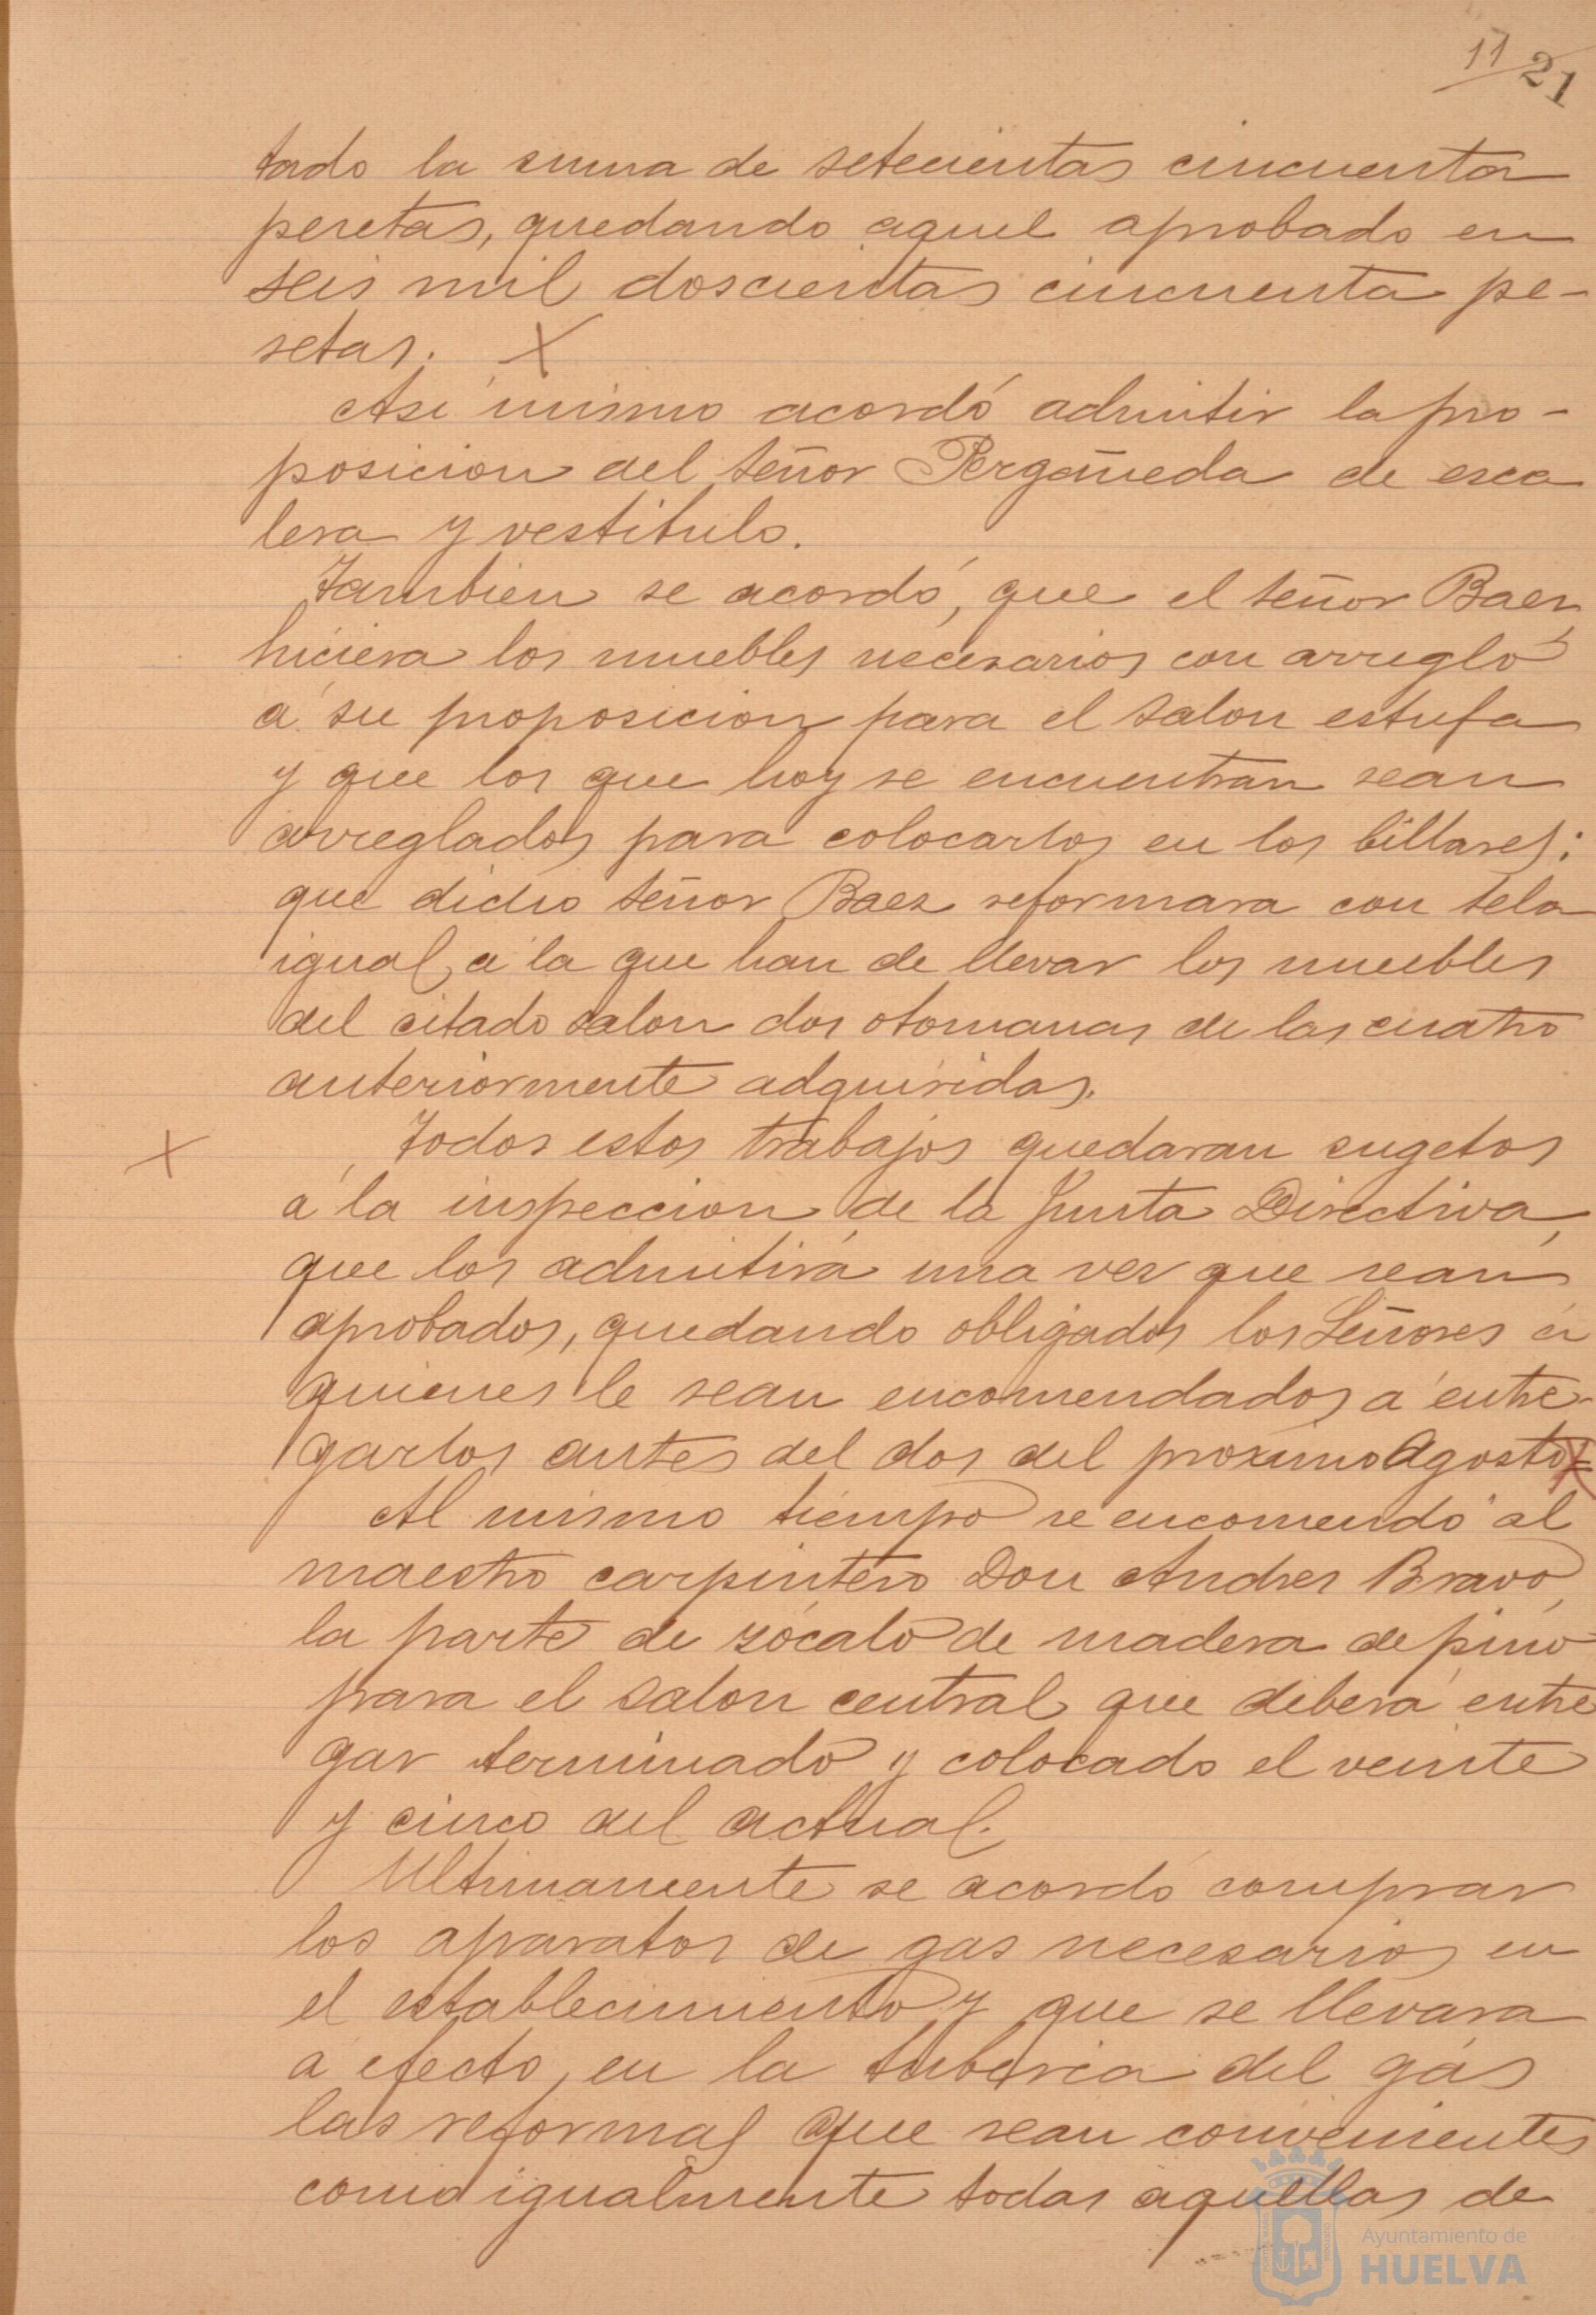 11 21
tado la suma de setecientas cincuenta
pesetas, quedando aquel aprobado en
seis mil doscientas cincuenta pe-
setas. X
Asi mismo acordó admitir la pro-
posicion del señor Pergañeda de esca
lera y vestibulo.
Tambien se acordó, que el señor Baez
hiciera los muebles necesarios con arreglo
á su proposicion para el salon estufa
y que los que hoy se encuentran sean
arreglados para colocarlos en los billares;
que dicho señor Baez reformara con tela
igual á la que han de llevar los muebles
del citado salon dos otomanas de las cuatro
anteriormente adquiridas.
X Todos estos trabajos quedaran sugetos
á la inspeccion de la Junta Directiva,
que los admitirá una vez que sean
aprobados, quedando obligados los Señores á
quienes le sean encomendados á entre-
garlos antes del dos del proximo Agosto= X
Al mismo tiempo se encomendó al
maestro carpintero Don Andres Bravo,
la parte de zócalo de madera de pino
para el salon central que deberá entre
gar terminado y colocado el veinte
y cinco del actual.
Ultimamente se acordó comprar
los aparatos de gas necesarios en
el establecimiento y que se llevara
á efecto, en la tuberia del gas
las reformas que sean convenientes
como igualmente todas aquellas de
Ayuntamiento de
HUELVA